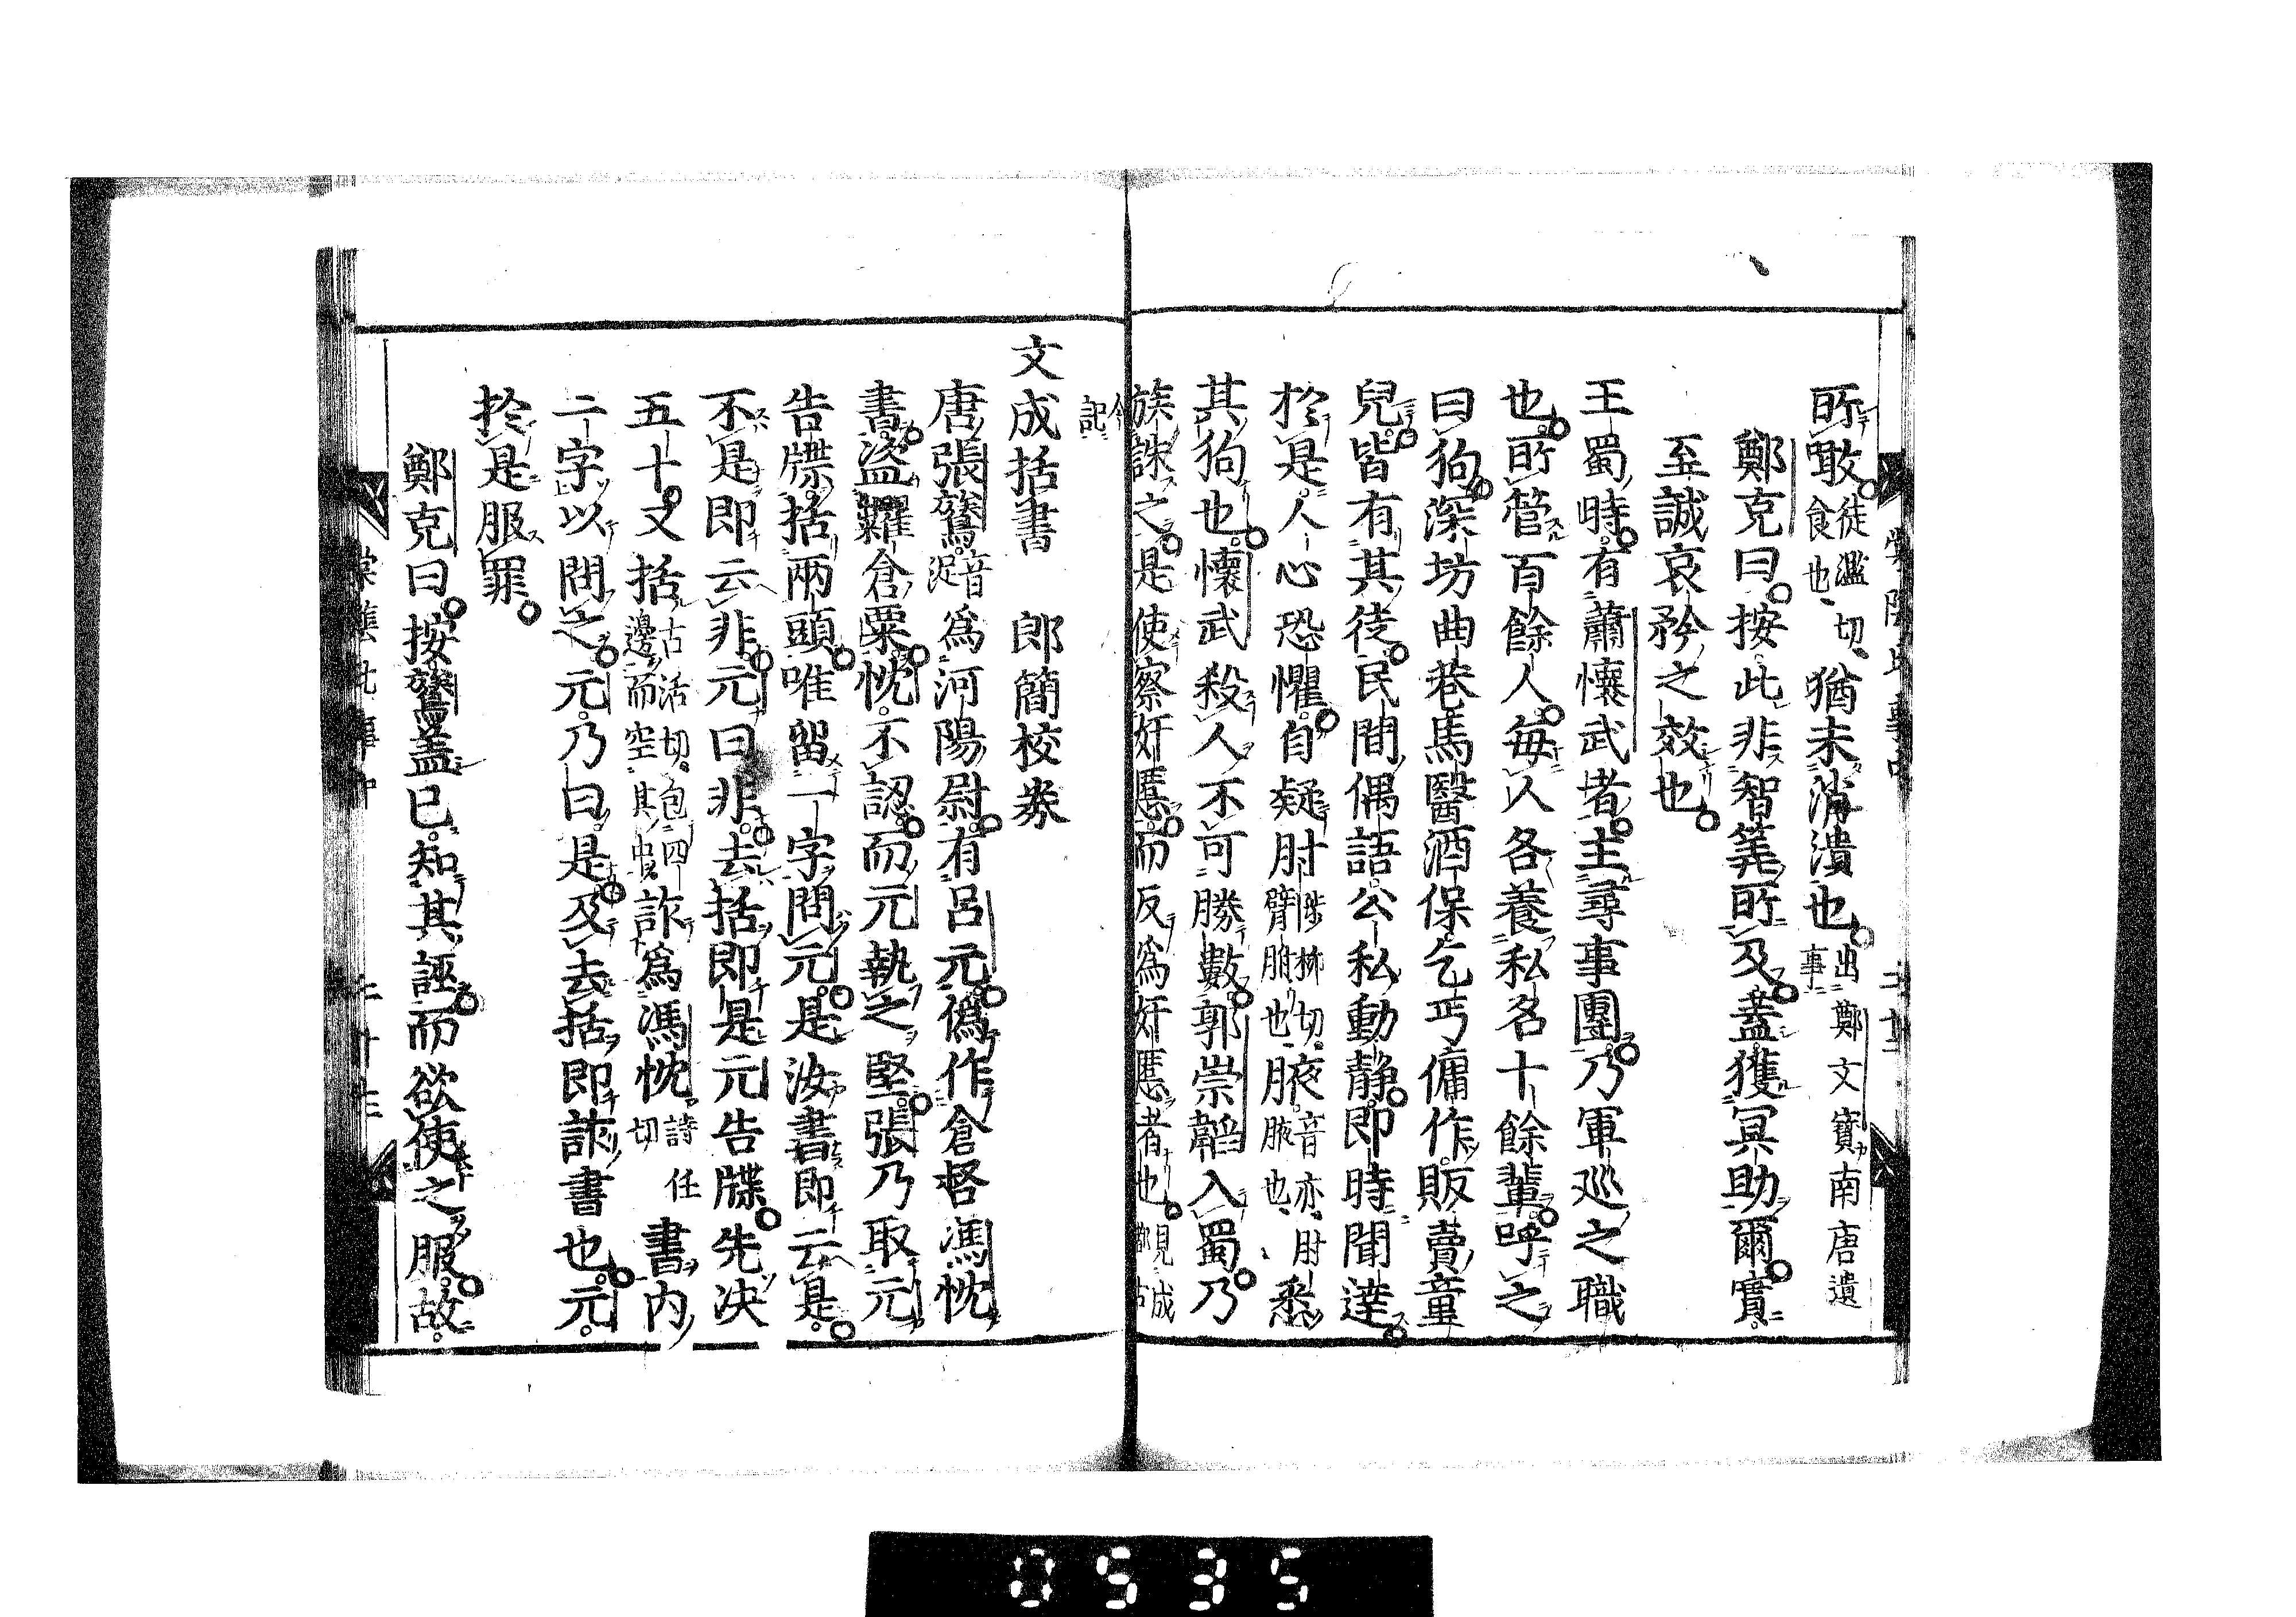 所噉徒濫切、食也、猶未消潰也出鄭文寶南唐遺事
鄭克曰按此非智筭所及蓋獲冥助爾實
至誠哀矜之效也
王蜀時有蕭懷武者主尋事團乃軍巡之職
也所管百餘人每人各養私名十餘輩呼之
曰狗深坊曲巷馬醫酒保乞丐傭作販賣童
兒皆有其徒民間偶語公私動静即時聞達
於是人心恐懼自疑肘陟柳切、臂䏔也、腋音亦、肘腋也、悉
其狗也懷武殺人不可勝數郭崇韜入蜀乃
族誅之是使察姦慝而反為姦慝者也見誠
記
文成括書　郎簡校券
唐張鷟音浞為河陽尉有呂元偽作倉督馮忱
書盜糶倉粟忱不認而元執之堅張乃取元
告牒括兩頭唯留一字問元是汝書即云是
不是即云非元曰非去括即是元告牒先决
五十又括古活切。包四邊而空其中詐為馮忱詩任切書内
二字以問之元乃曰是及去括即詐書也元
於是服罪
鄭克曰按鷟蓋已知其誣而欲使之服故
棠陰比事中
0535